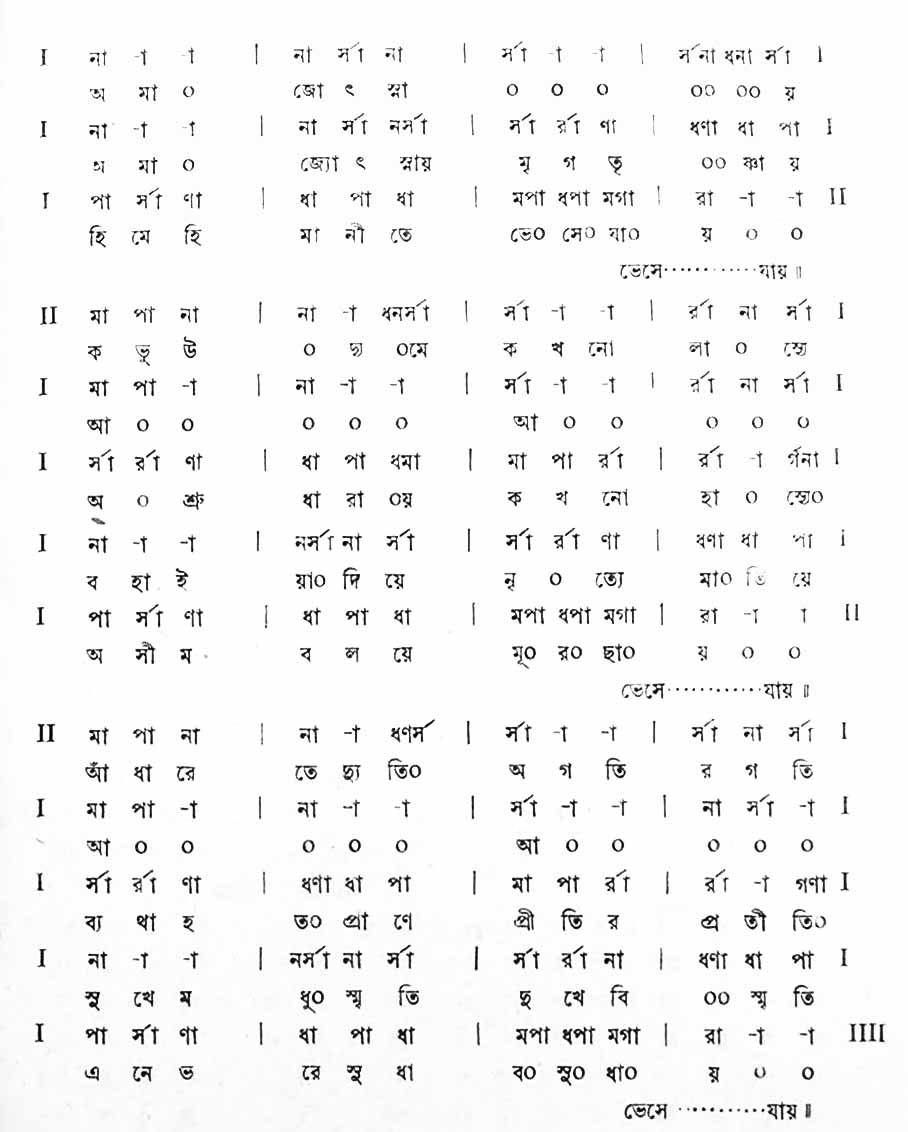 I না -া -া | না র্সা না | র্সা -া -া | র্সনা ধনা র্সা I
অ মা ০ জো ৎ স্না ০ ০ ০ ০০ ০০ য়
I না -া -া | না র্সা নর্সা | র্সা র্রা ণা | ধণা ধা পা I
অ মা ০ জ্যো ৎ স্নায় মৃ গ তৃ ০০ ষ্ণা য়
I পা র্সা ণা | ধা পা ধা | মপা ধপা মগা | রা -া -া II
হি মে হি মা নী তে ভে০ সে০ যা০ য় ০ ০
ভেসে············যায়॥
II মা পা না | না -া ধনর্সা | র্সা -া -া | র্রা না র্সা I
ক ভূ উ ০ ছ্ব ০মে ক খ নো লা ০ স্যে
I মা পা -া | না -া -া | র্সা -া -া | র্রা না র্সা I
আ ০ ০ ০ ০ ০ আ ০ ০ ০ ০ ০
I র্সা র্রা ণা | ধা পা ধমা | মা পা র্রা | র্রা -া র্গনা I
অ ০ শ্রু ধা রা ০য় ক খ নো হা ০ স্যে০
I না -া -া | নর্সা না র্সা | র্সা র্রা ণা | ধণা ধা পা I
ব হা ই য়া০ দি য়ে নৃ ০ ত্যে মা০ তি য়ে
I পা র্সা ণা | ধা পা ধা | মপা ধপা মগা | রা -া া II
অ সী ম ব ল য়ে মূ০ র০ ছা০ য় ০ ০
ভেসে············যায়॥
II মা পা না | না -া ধণর্স | র্সা -া -া | র্সা না র্সা I
আঁ ধা রে তে ছ্যু তি০ অ গ তি র গ তি
I মা পা -া | না -া -া | র্সা -া -া | না র্সা -া I
আ ০ ০ ০ ০ ০ আ ০ ০ ০ ০ ০
I র্সা র্রা ণা | ধণা ধা পা | মা পা র্রা | র্রা -া গণা I
ব্য থা হ ত০ প্রা ণে প্রী তি র প্র তী তি০
I না -া -া | নর্সা না র্সা | র্সা র্রা না | ধণা ধা পা I
সু খে ম ধু০ স্মৃ তি ছু খে বি ০০ স্মৃ তি
I পা র্সা ণা | ধা পা ধা | মপা ধপা মগা | রা -া -া IIII
এ নে ভ রে সু ধা ব০ সু০ ধা০ য় ০ ০
ভেসে············যায়॥